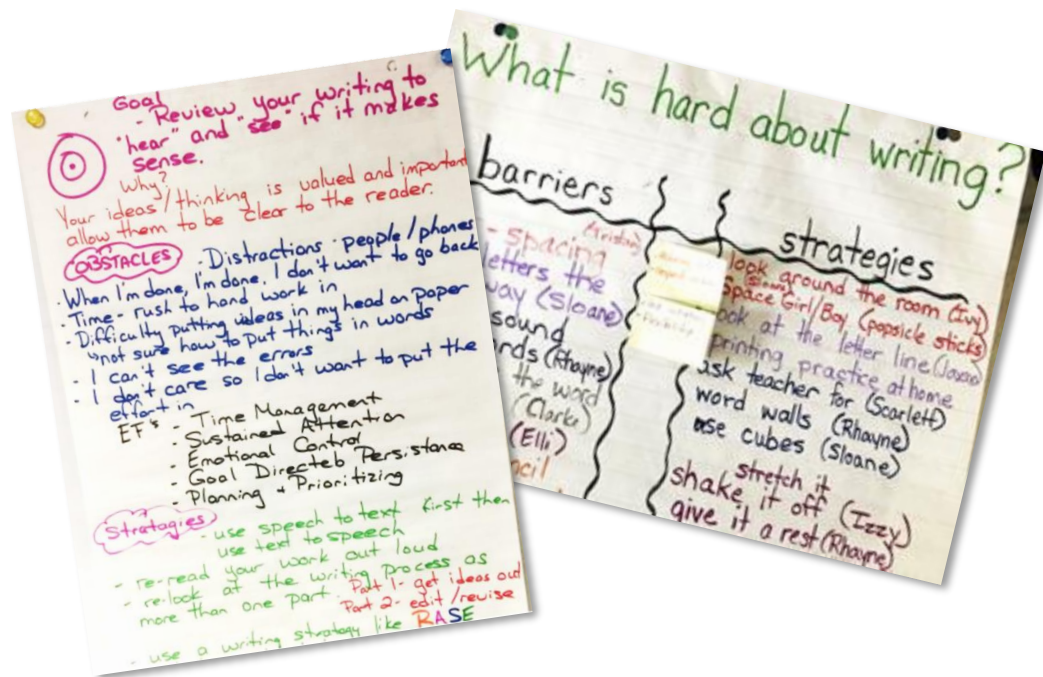 Goal
- Review your writing to
"hear" and "see" if it makes
sense.
Why?
Your ideas/thinking is valued and important
allow them to be clear to the reader.
OBSTACLES - Distractions - people/phones
- When I'm done, I'm done. I don't want to go back
- Time - rush to hand work in
- Difficulty putting ideas in my head on paper
not sure how to put things in words
- I can't see the errors
- I don't care so I don't want to put the
effort in
EF's - Time Management
- Sustained Attention
- Emotional Control
- Goal Directed Persistance
- Planning + Prioritizing
Stratagies - use speech to text first then
use text to speech
- re-read your work out loud
- re-look at the writing process as
more than one part. Part 1- get ideas out
Part 2- edit/revise
- use a writing strategy like RASE
What is hard about writing?
barriers
- spacing (Tristan)
letters the
way (Sloane)
sound
rds (Rhayne)
the word
(Clarke)
(Elli)
ncil
strategies
look around the room (Ivy)
Space Girl/Boy (popsicle sticks)
look at the letter line
printing practice at home
ask teacher for (Scarlett)
word walls (Rhayne)
use cubes (Sloane)
stretch it
shake it off (Izzy)
give it a rest (Rhayne)